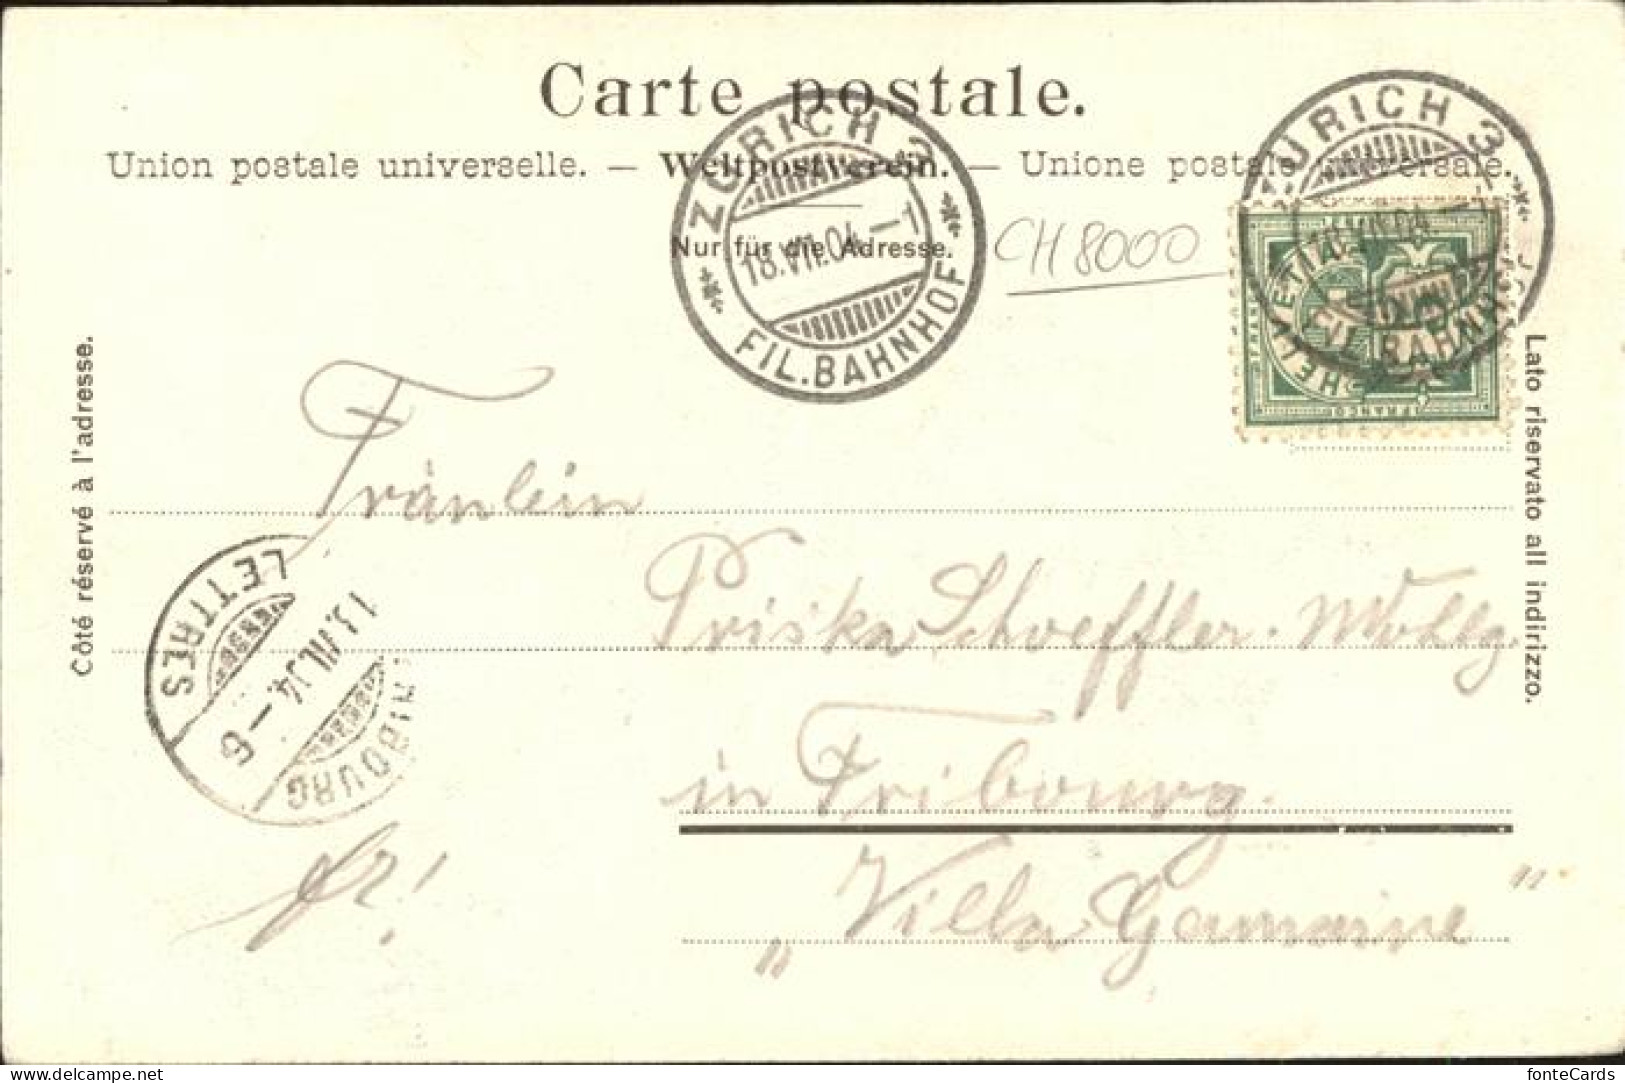 Carte postale.
Union postale universelle. — Weltpostverein. — Unione postale universale.
Nur für die Adresse.
ZÜRICH 3
18.VII.04.—1
FIL.BAHNHOF
CH 8000
ZÜRICH 3
18.VII.04.—1
FIL.BAHNHOF
HELVETIA
FRANCO
Côté réservé à l'adresse.
Lato riservato all indirizzo.
Fräulein
Priska Schoeffler.
in Fribourg.
„Villa Germaine"
FRIBOURG
LETTRES
—6
fr!
fonteCards